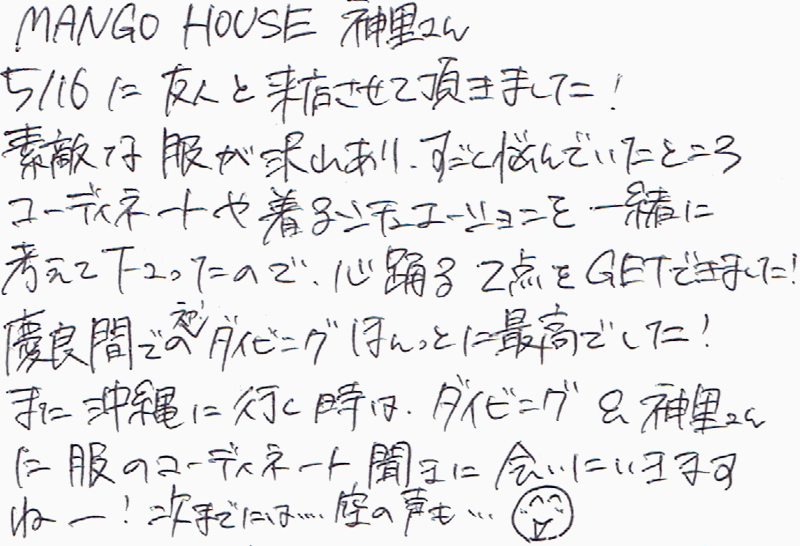 MANGO HOUSE 神里さん
5/16に友人と来店させて頂きました!
素敵な服が沢山あり、すごく悩んでいたところ
コーディネートや着るシチュエーションを一緒に
考えて下さったので、心踊る2点をGETできました!
慶良間での ダイビングほんっとに最高でした!
また沖縄に行く時は、ダイビング&神里さん
に服のコーディネート聞きに会いにいきます
ねー!次までには……の声も…